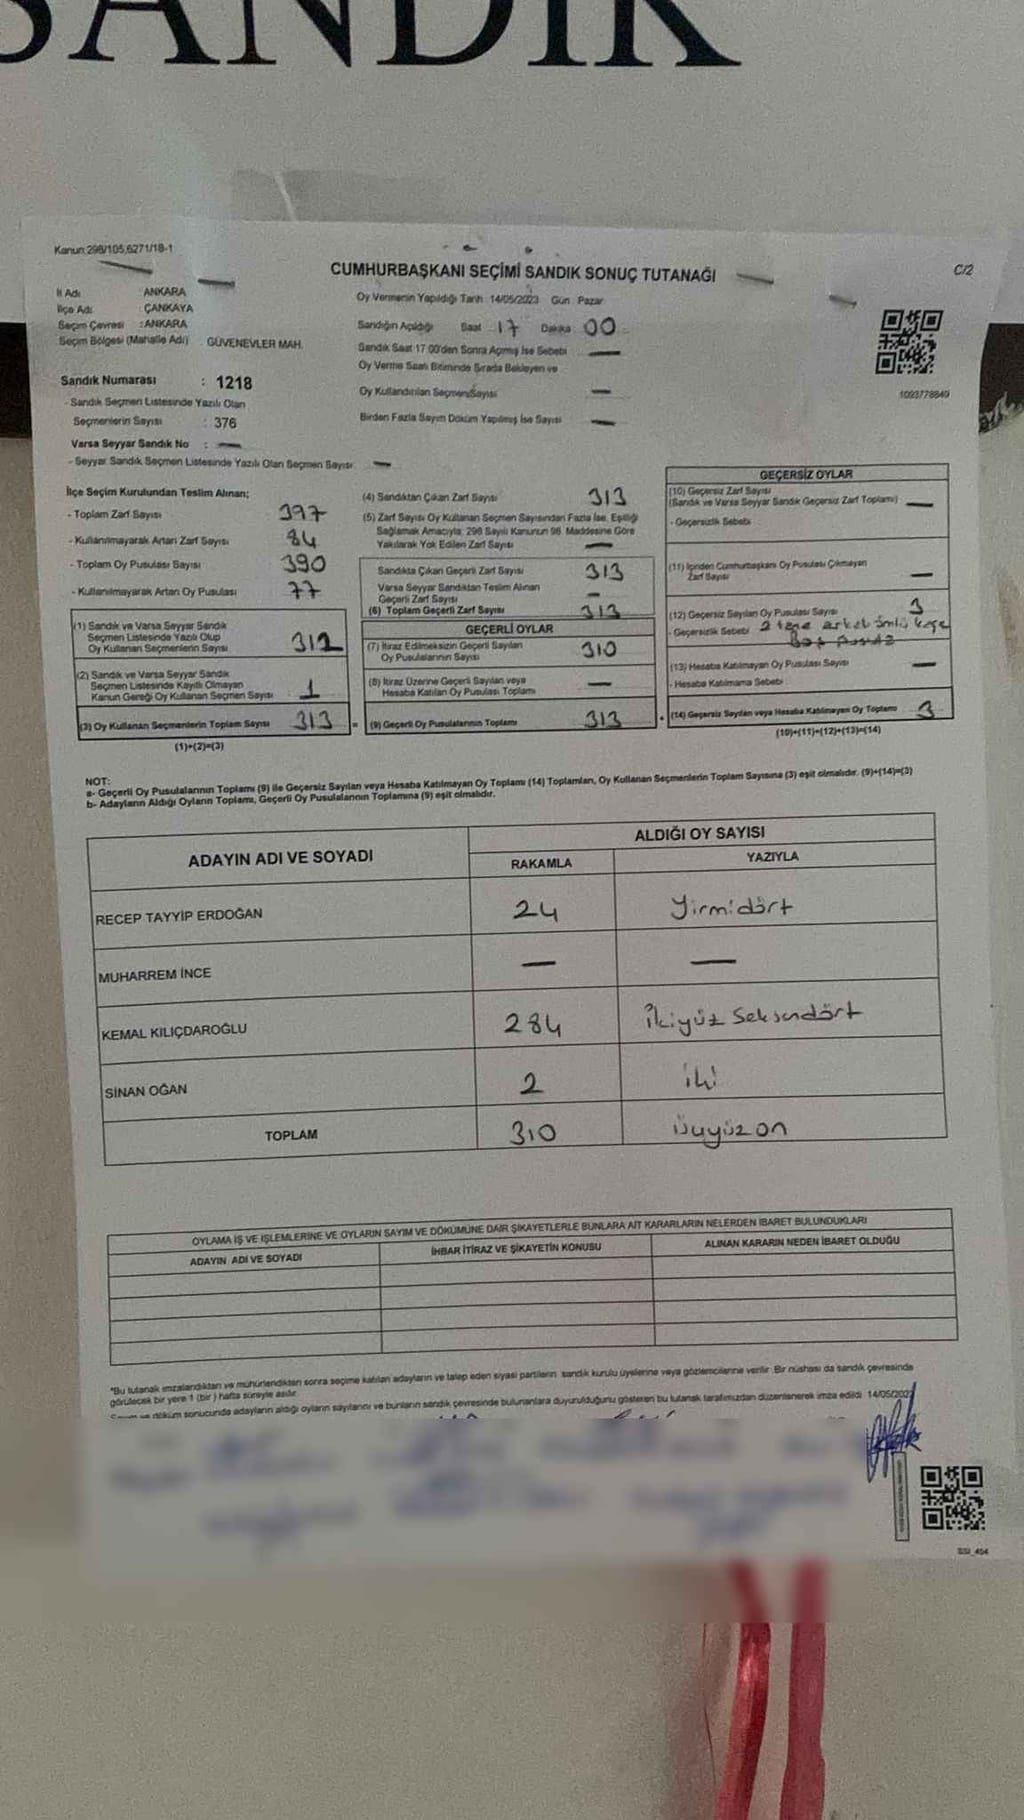 SANDIK
Kanun:298/105,6271/18-1
CUMHURBAŞKANI SEÇİMİ SANDIK SONUÇ TUTANAĞI
C/2
İl Adı : ANKARA
İlçe Adı : ÇANKAYA
Seçim Çevresi : ANKARA
Seçim Bölgesi (Mahalle Adı) GÜVENEVLER MAH.
Sandık Numarası : 1218
- Sandık Seçmen Listesinde Yazılı Olan
Seçmenlerin Sayısı : 376
Varsa Seyyar Sandık No : —
- Seyyar Sandık Seçmen Listesinde Yazılı Olan Seçmen Sayısı —
Oy Vermenin Yapıldığı Tarih 14/05/2023 Gün Pazar
Sandığın Açıldığı Saat 17 Dakika 00
Sandık Saat 17:00'den Sonra Açılmış İse Sebebi —
Oy Verme Saati Bitiminde Sırada Bekleyen ve
Oy Kullandırılan Seçmen Sayısı —
Birden Fazla Sayım Döküm Yapılmış İse Sayısı —
1093778849
İlçe Seçim Kurulundan Teslim Alınan;
- Toplam Zarf Sayısı 397
- Kullanılmayarak Artan Zarf Sayısı 84
- Toplam Oy Pusulası Sayısı 390
- Kullanılmayarak Artan Oy Pusulası 77
(1) Sandık ve Varsa Seyyar Sandık
Seçmen Listesinde Yazılı Olup
Oy Kullanan Seçmenlerin Sayısı 312
(2) Sandık ve Varsa Seyyar Sandık
Seçmen Listesinde Kayıtlı Olmayan
Kanun Gereği Oy Kullanan Seçmen Sayısı 1
(3) Oy Kullanan Seçmenlerin Toplam Sayısı 313
(1)+(2)=(3)
(4) Sandıktan Çıkan Zarf Sayısı 313
(5) Zarf Sayısı Oy Kullanan Seçmen Sayısından Fazla İse, Eşitliği
Sağlamak Amacıyla; 298 Sayılı Kanunun 98. Maddesine Göre
Yakılarak Yok Edilen Zarf Sayısı —
Sandıkta Çıkan Geçerli Zarf Sayısı 313
Varsa Seyyar Sandıktan Teslim Alınan
Geçerli Zarf Sayısı —
(6) Toplam Geçerli Zarf Sayısı 313
GEÇERLİ OYLAR
(7) İtiraz Edilmeksizin Geçerli Sayılan
Oy Pusulalarının Sayısı 310
(8) İtiraz Üzerine Geçerli Sayılan veya
Hesaba Katılan Oy Pusulası Toplamı —
= (9) Geçerli Oy Pusulalarının Toplamı 313
GEÇERSİZ OYLAR
(10) Geçersiz Zarf Sayısı
(Sandık ve Varsa Seyyar Sandık Geçersiz Zarf Toplamı) —
- Geçersizlik Sebebi
(11) İçinden Cumhurbaşkanı Oy Pusulası Çıkmayan
Zarf Sayısı —
(12) Geçersiz Sayılan Oy Pusulası Sayısı 3
- Geçersizlik Sebebi 2 tane
Boş pusula
(13) Hesaba Katılmayan Oy Pusulası Sayısı —
- Hesaba Katılmama Sebebi
+ (14) Geçersiz Sayılan veya Hesaba Katılmayan Oy Toplamı 3
(10)+(11)+(12)+(13)=(14)
NOT:
a- Geçerli Oy Pusulalarının Toplamı (9) ile Geçersiz Sayılan veya Hesaba Katılmayan Oy Toplamı (14) Toplamları, Oy Kullanan Seçmenlerin Toplam Sayısına (3) eşit olmalıdır. (9)+(14)=(3)
b- Adayların Aldığı Oyların Toplamı, Geçerli Oy Pusulalarının Toplamına (9) eşit olmalıdır.
ADAYIN ADI VE SOYADI
ALDIĞI OY SAYISI
RAKAMLA YAZIYLA
RECEP TAYYİP ERDOĞAN 24 Yirmidört
MUHARREM İNCE — —
KEMAL KILIÇDAROĞLU 284 İkiyüz Seksendört
SİNAN OĞAN 2 iki
TOPLAM 310 üçyüzon
OYLAMA İŞ VE İŞLEMLERİNE VE OYLARIN SAYIM VE DÖKÜMÜNE DAİR ŞİKAYETLERLE BUNLARA AİT KARARLARIN NELERDEN İBARET BULUNDUKLARI
ADAYIN ADI VE SOYADI İHBAR İTİRAZ VE ŞİKAYETİN KONUSU ALINAN KARARIN NEDEN İBARET OLDUĞU
*Bu tutanak imzalandıktan ve mühürlendikten sonra seçime katılan adayların ve talep eden siyasi partilerin sandık kurulu üyelerine veya gözlemcilerine verilir. Bir nüshası da sandık çevresinde
görülecek bir yere 1 (bir) hafta süreyle asılır.
Sayım ve döküm sonucunda adayların aldığı oyların sayılarını ve bunların sandık çevresinde bulunanlara duyurulduğunu gösteren bu tutanak tarafımızdan düzenlenerek imza edildi. 14/05/2023